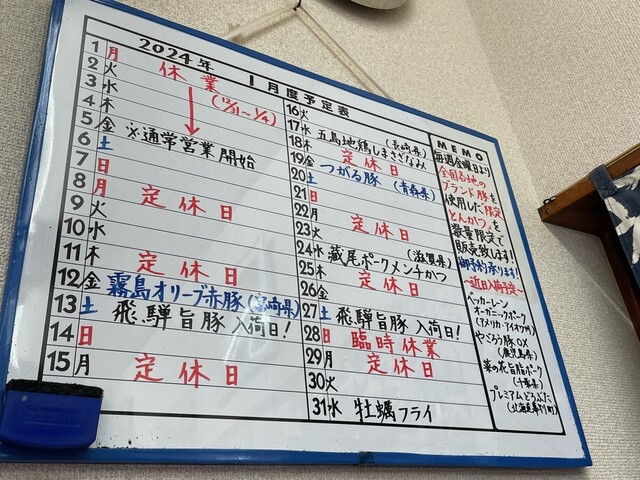 2024年 1月度予定表
1 月 休業
2 火 (12/31~1/4)
3 水
4 木
5 金 ※通常営業開始
6 土
7 日
8 月 定休日
9 火
10 水
11 木 定休日
12 金 霧島オリーブ赤豚(宮崎県)
13 土 飛騨旨豚 入荷日!
14 日
15 月 定休日
16 火
17 水 五島地鶏しまさざなみ (長崎県)
18 木 定休日
19 金 つがる豚 (青森県)
20 土
21 日
22 月 定休日
23 火
24 水 蔵尾ポークメンチかつ (滋賀県)
25 木 定休日
26 金
27 土 飛騨旨豚 入荷日!
28 日 臨時休業
29 月 定休日
30 火
31 水 牡蠣フライ
MEMO
毎週金曜日より
全国各地の
ブランド豚を
使用した「限定
とんかつ」を
数量限定で
販売致します!
御予約承ります!
~近日入荷予定~
ベッカーレーン
オーガニックポーク
(アメリカ・アイオワ州)
やごろう豚OX
(鹿児島県)
菜の花旨脂ポーク
(千葉県)
プレミアムどろぶた